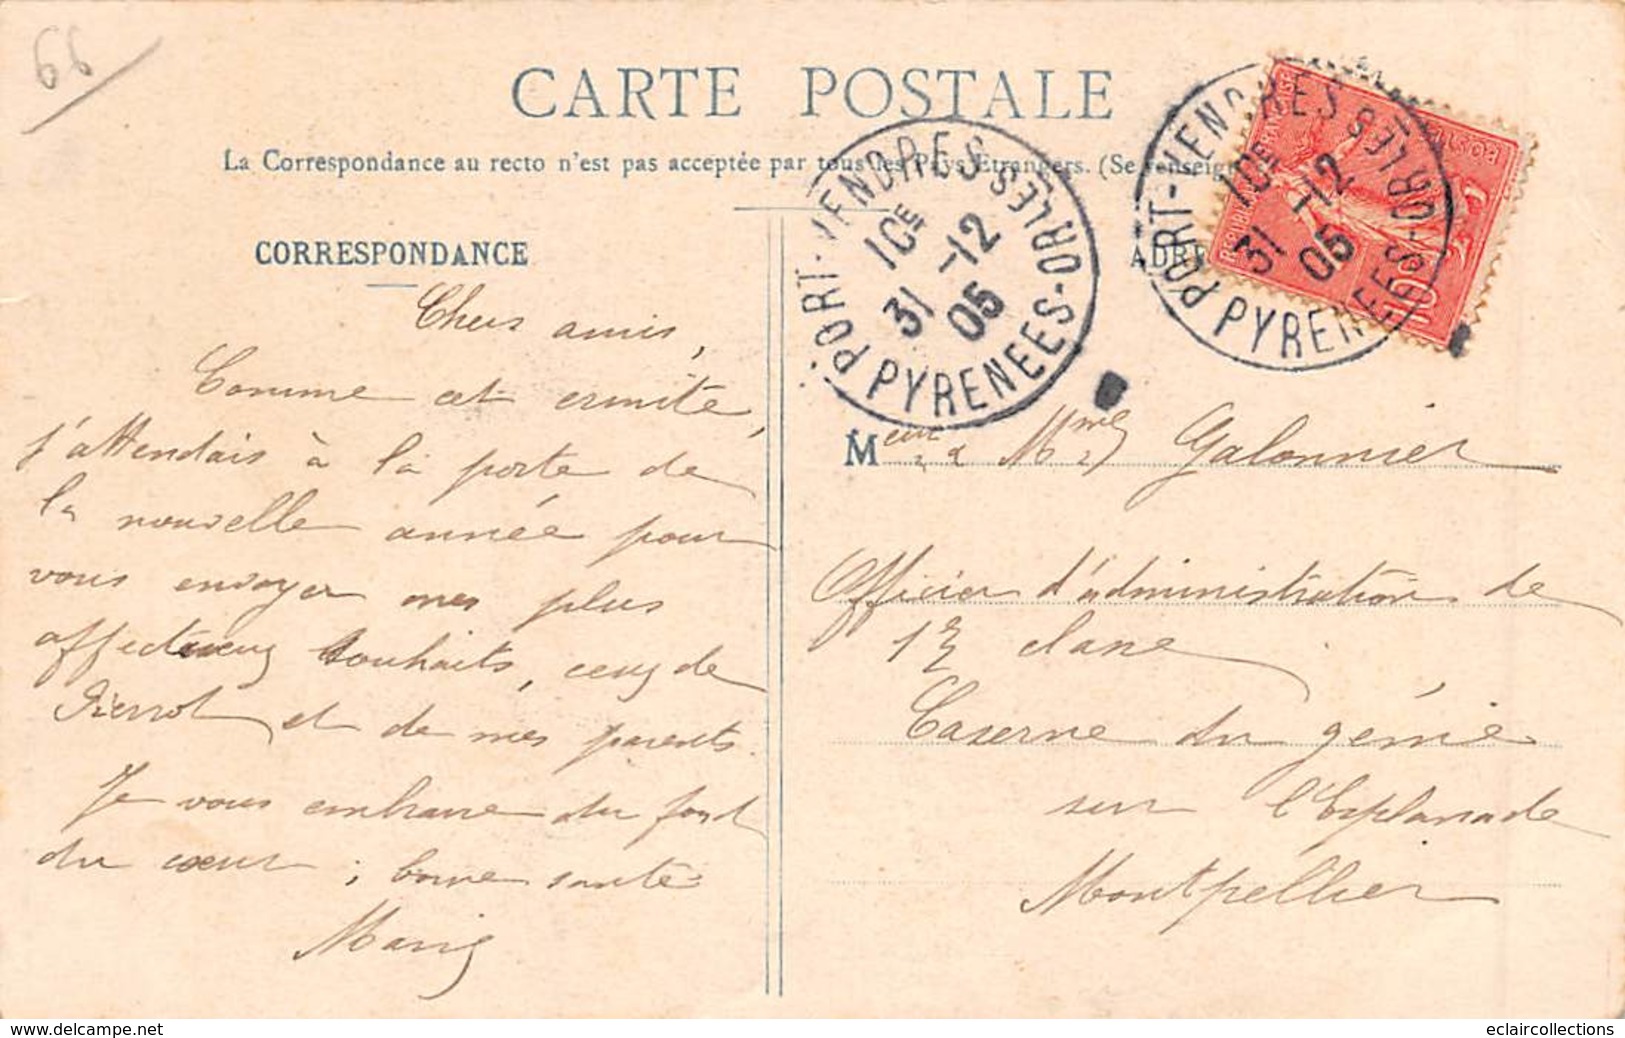 66
CARTE POSTALE
La Correspondance au recto n'est pas acceptée par tous les Pays Etrangers. (Se renseign
CORRESPONDANCE
ADRE
PORT-VENDRES
PYRENEES-ORLES
10E
31 -12
05
PORT-VENDRES
PYRENEES-ORLES
10E
31 -12
05
Chers amis,
Comme cet ermite,
j'attendais à la porte de
la nouvelle année pour
vous envoyer mes plus
affectueux souhaits, ceux de
Pierrot et de mes parents.
Je vous embrasse du fond
du cœur ; bonne santé
Marie
Meur & Mme Galonnier
Officier d'administration de
1e classe
Caserne du génie
sur l'Esplanade
Montpellier
www.delcampe.net
eclaircollections